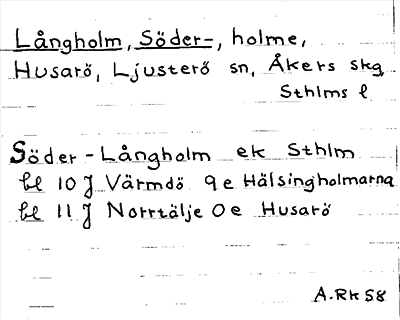 Långholm, Söder-, holme,
Husarö, Ljusterö sn, Åkers skg
Sthlms l
Söder-Långholm ek Sthlm
bl 10 J Värmdö 9e Hälsingholmarna
bl 11 J Norrtälje 0e Husarö
A.Rk 58